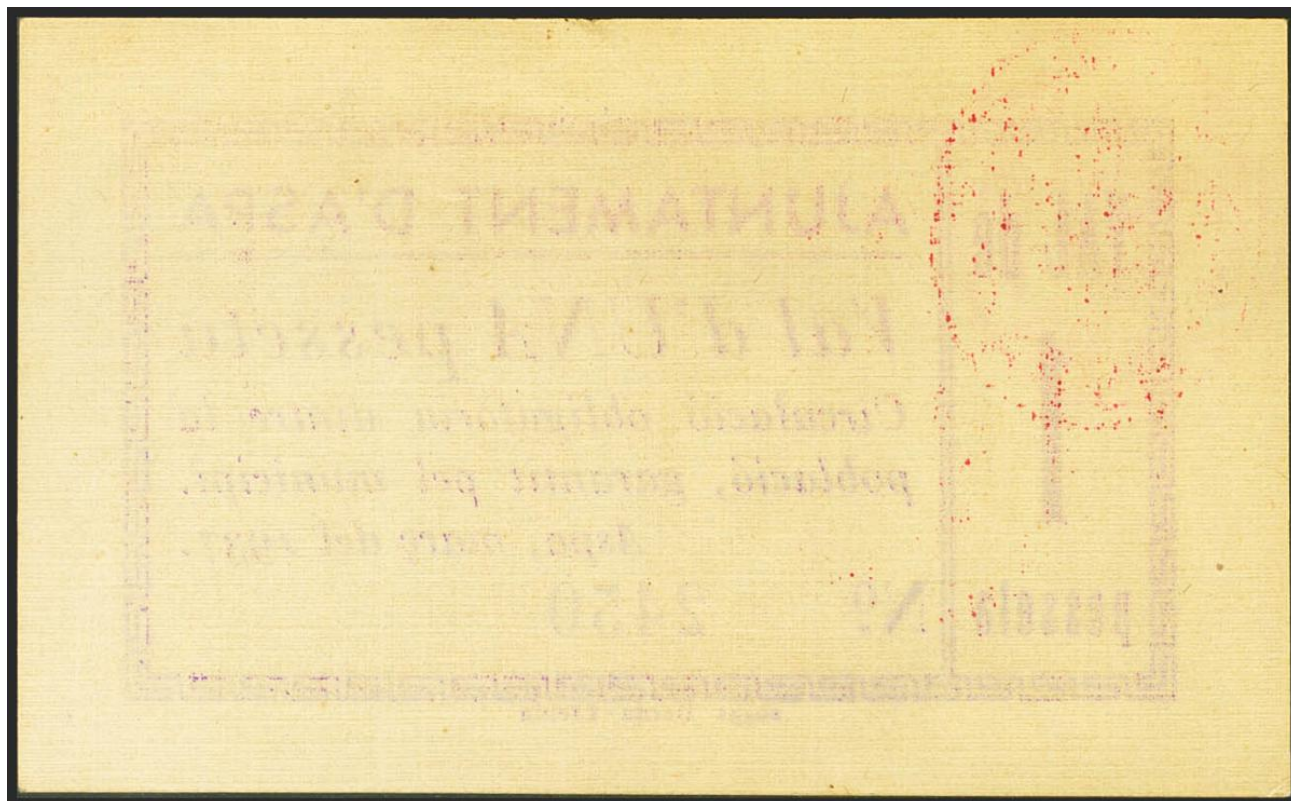 AJUNTAMENT D'ASPA
Val d'UNA pesseta
Circulació obligatòria entre la
població, garantit pel municipi.
Aspa, març del 1937.
Nº
1
pesseta